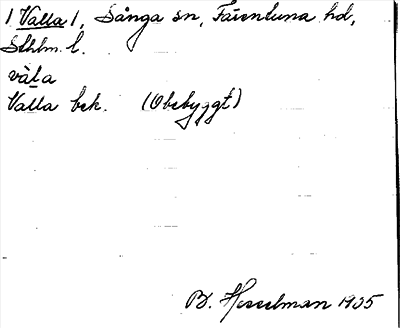 1 Valla 1, Sånga sn, Färentuna hd,
Sthlm. l.
vàla
Valla bek. (Obebyggt)
B. Hesselman 1935